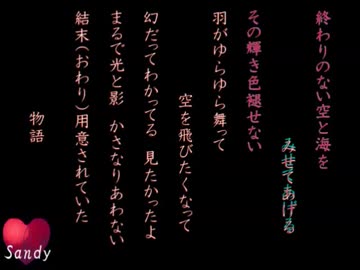 終わりのない空と海を
みせてあげる
その輝き色褪せない
羽がゆらゆら舞って
空を飛びたくなって
幻だってわかってる 見たかったよ
まるで光と影 かさなりあわない
結末(おわり)用意されていた
物語
Sandy